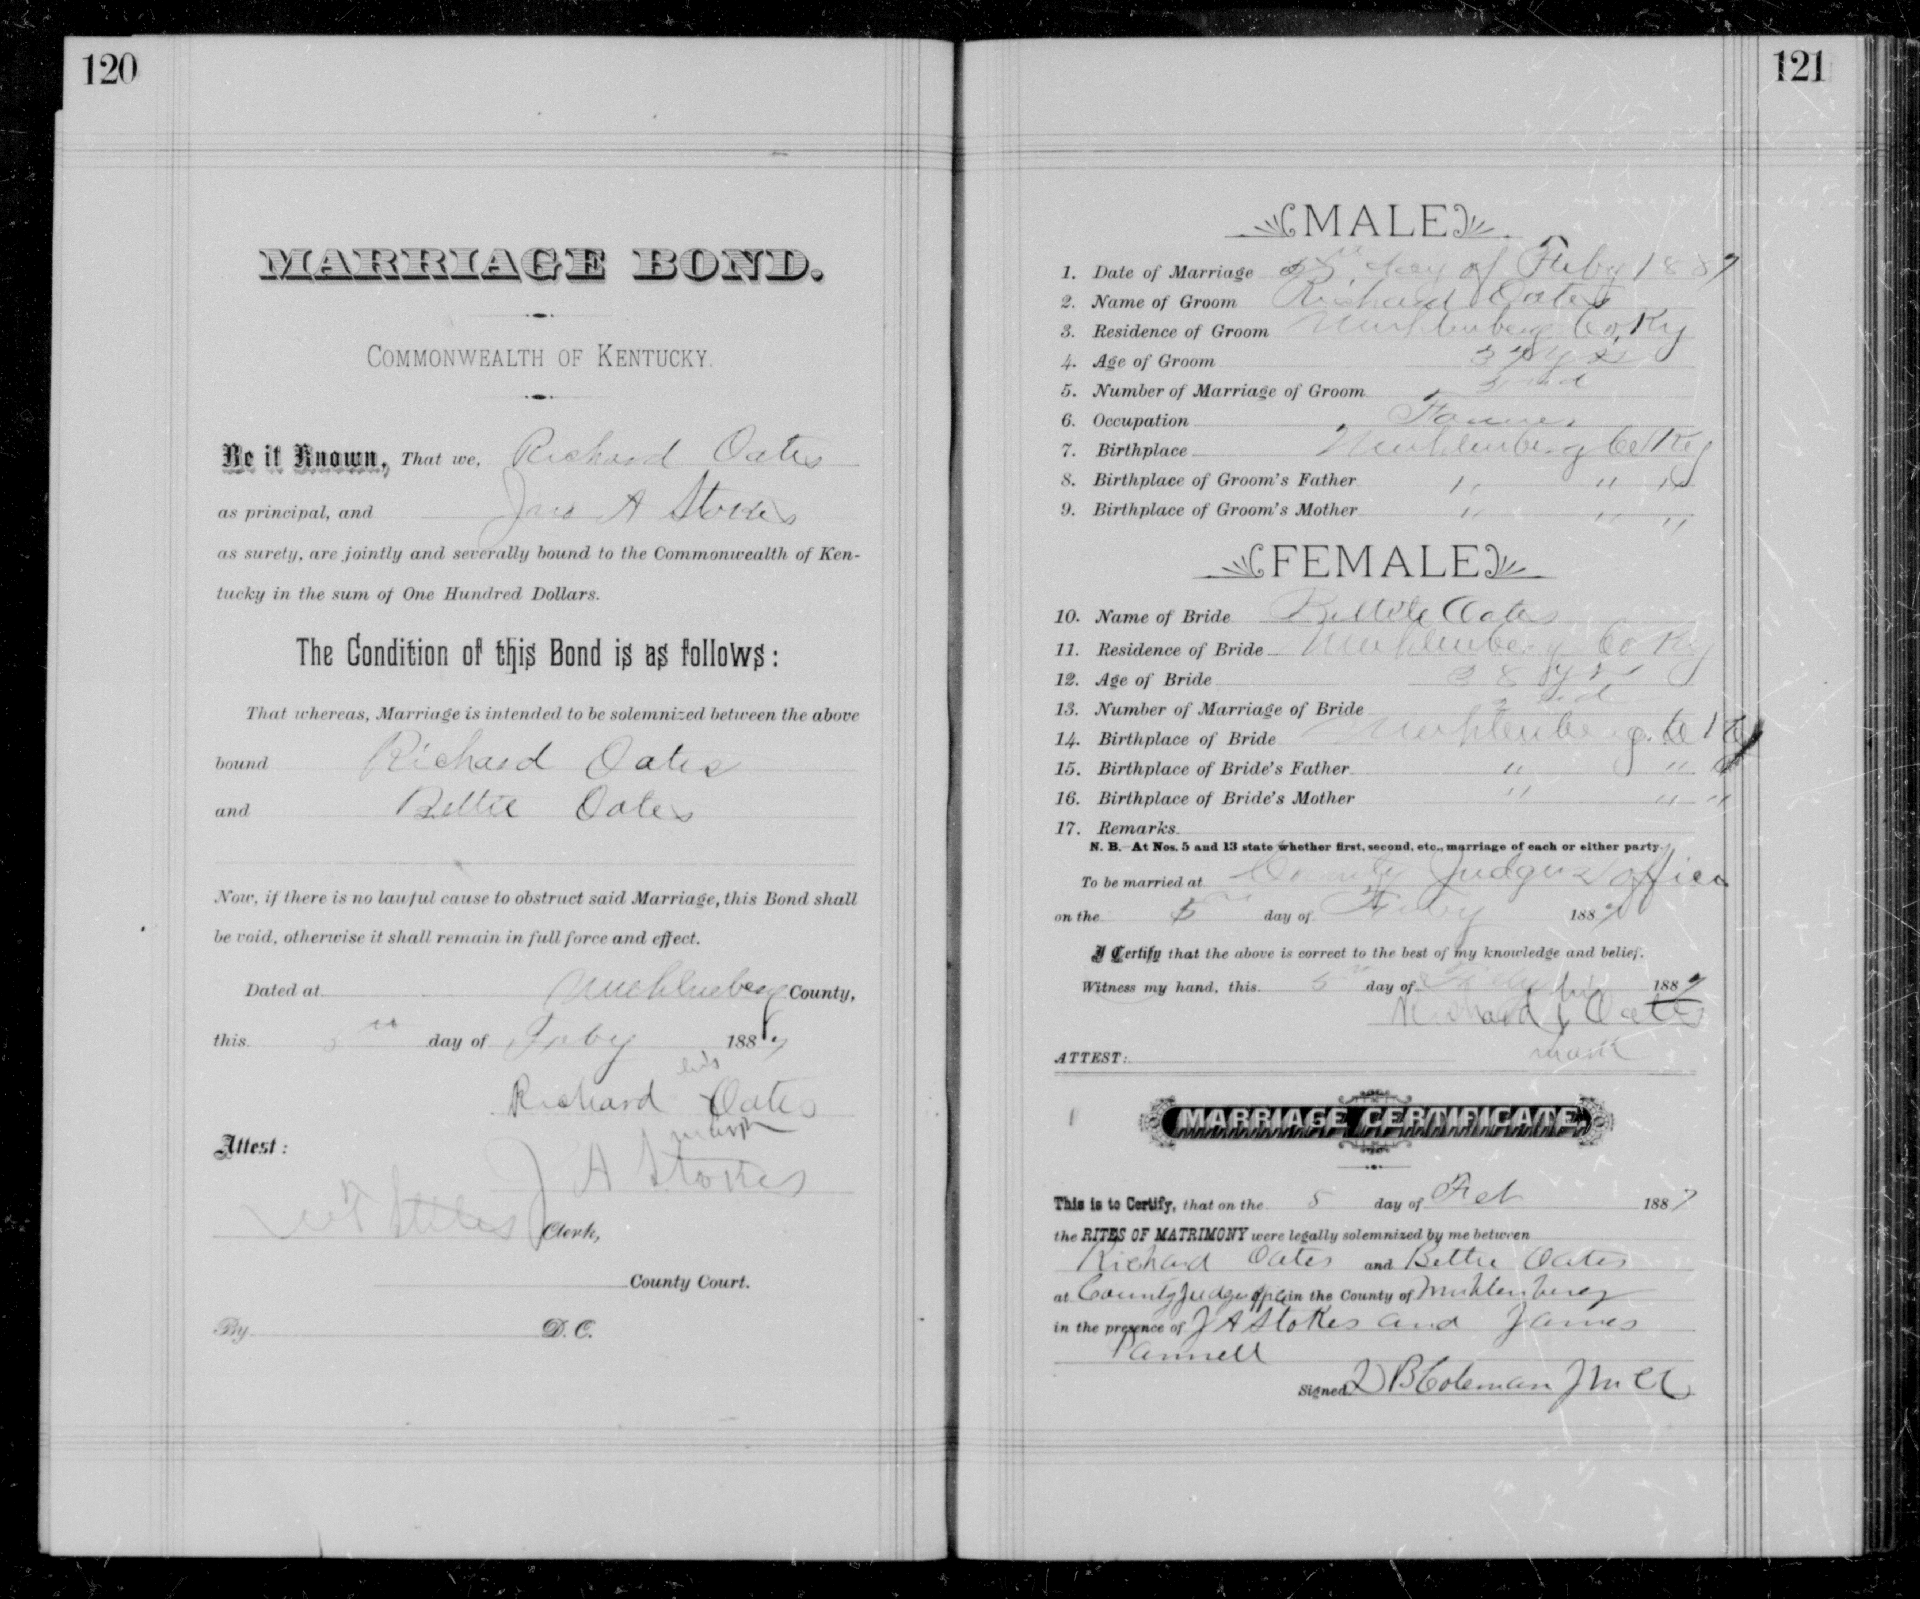 120
MARRIAGE BOND.
COMMONWEALTH OF KENTUCKY.
Be it Known, That we, Richard Oates
as principal, and Jno A Stokes
as surety, are jointly and severally bound to the Commonwealth of Ken-
tucky in the sum of One Hundred Dollars.
The Condition of this Bond is as follows:
That whereas, Marriage is intended to be solemnized between the above
bound Richard Oates
and Bettie Oates
Now, if there is no lawful cause to obstruct said Marriage, this Bond shall
be void, otherwise it shall remain in full force and effect.
Dated at Muhlenberg County,
this 5th day of Feby 1887
his
Richard x Oates
mark
Attest:
J A Stokes
Clerk,
County Court.
By D. C.
121
MALE
1. Date of Marriage 5th day of Feby 1887
2. Name of Groom Richard Oates
3. Residence of Groom Muhlenberg Co Ky
4. Age of Groom 37 yrs
5. Number of Marriage of Groom
6. Occupation Farmer
7. Birthplace Muhlenberg Co Ky
8. Birthplace of Groom's Father " " "
9. Birthplace of Groom's Mother " " "
FEMALE
10. Name of Bride Bettie Oates
11. Residence of Bride Muhlenberg Co Ky
12. Age of Bride 38 yrs
13. Number of Marriage of Bride
14. Birthplace of Bride Muhlenberg Co Ky
15. Birthplace of Bride's Father " " "
16. Birthplace of Bride's Mother " " "
17. Remarks
N. B.—At Nos. 5 and 13 state whether first, second, etc., marriage of each or either party.
To be married at County Judges office
on the 5th day of Feby 1887
I Certify that the above is correct to the best of my knowledge and belief.
Witness my hand, this 5th day of Feby 1887
his
Richard x Oates
mark
ATTEST:
MARRIAGE CERTIFICATE
This is to Certify, that on the 5 day of Feb 1887
the RITES OF MATRIMONY were legally solemnized by me between
Richard Oates and Bettie Oates
at County Judges office in the County of Muhlenberg
in the presence of J A Stokes and James
Pannell
Signed D B Coleman J M C C